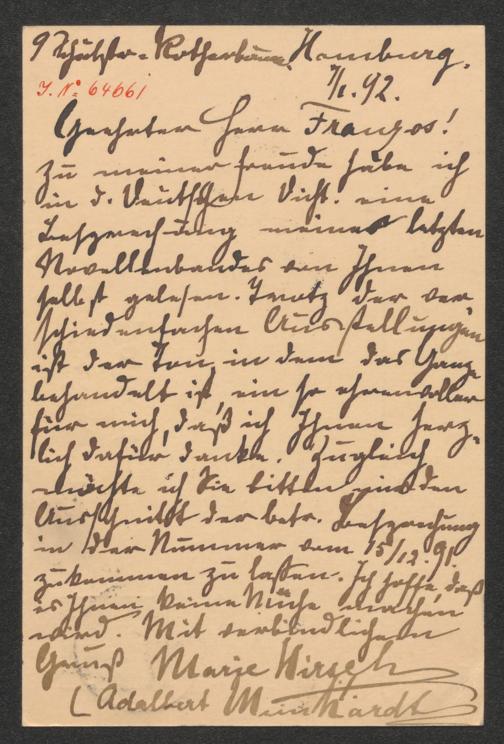 9 Schützstr. Rotherbaum. Hamburg.
J. № 64661
7/1. 92.
Geehrter Herr Franzos!
Zu meiner Freude habe ich
in d. Deutschen Dicht. eine
Besprechung meines letzten
Novellenbandes von Ihnen
selbst gelesen. Trotz der ver
schiedenfachen Ausstellungen
ist der Ton, in dem das Ganze
behandelt ist, ein so ehrenvoller
für mich, daß ich Ihnen herz-
lich dafür danke. Zugleich
möchte ich Sie bitten mir den
Ausschnitt der betr. Besprechung
in der Nummer vom 15/12. 91.
zukommen zu lassen. Ich hoffe, daß
es Ihnen keine Mühe machen
wird. Mit verbindlichem
Gruß Marie Hirsch
(Adalbert Meinhardt)